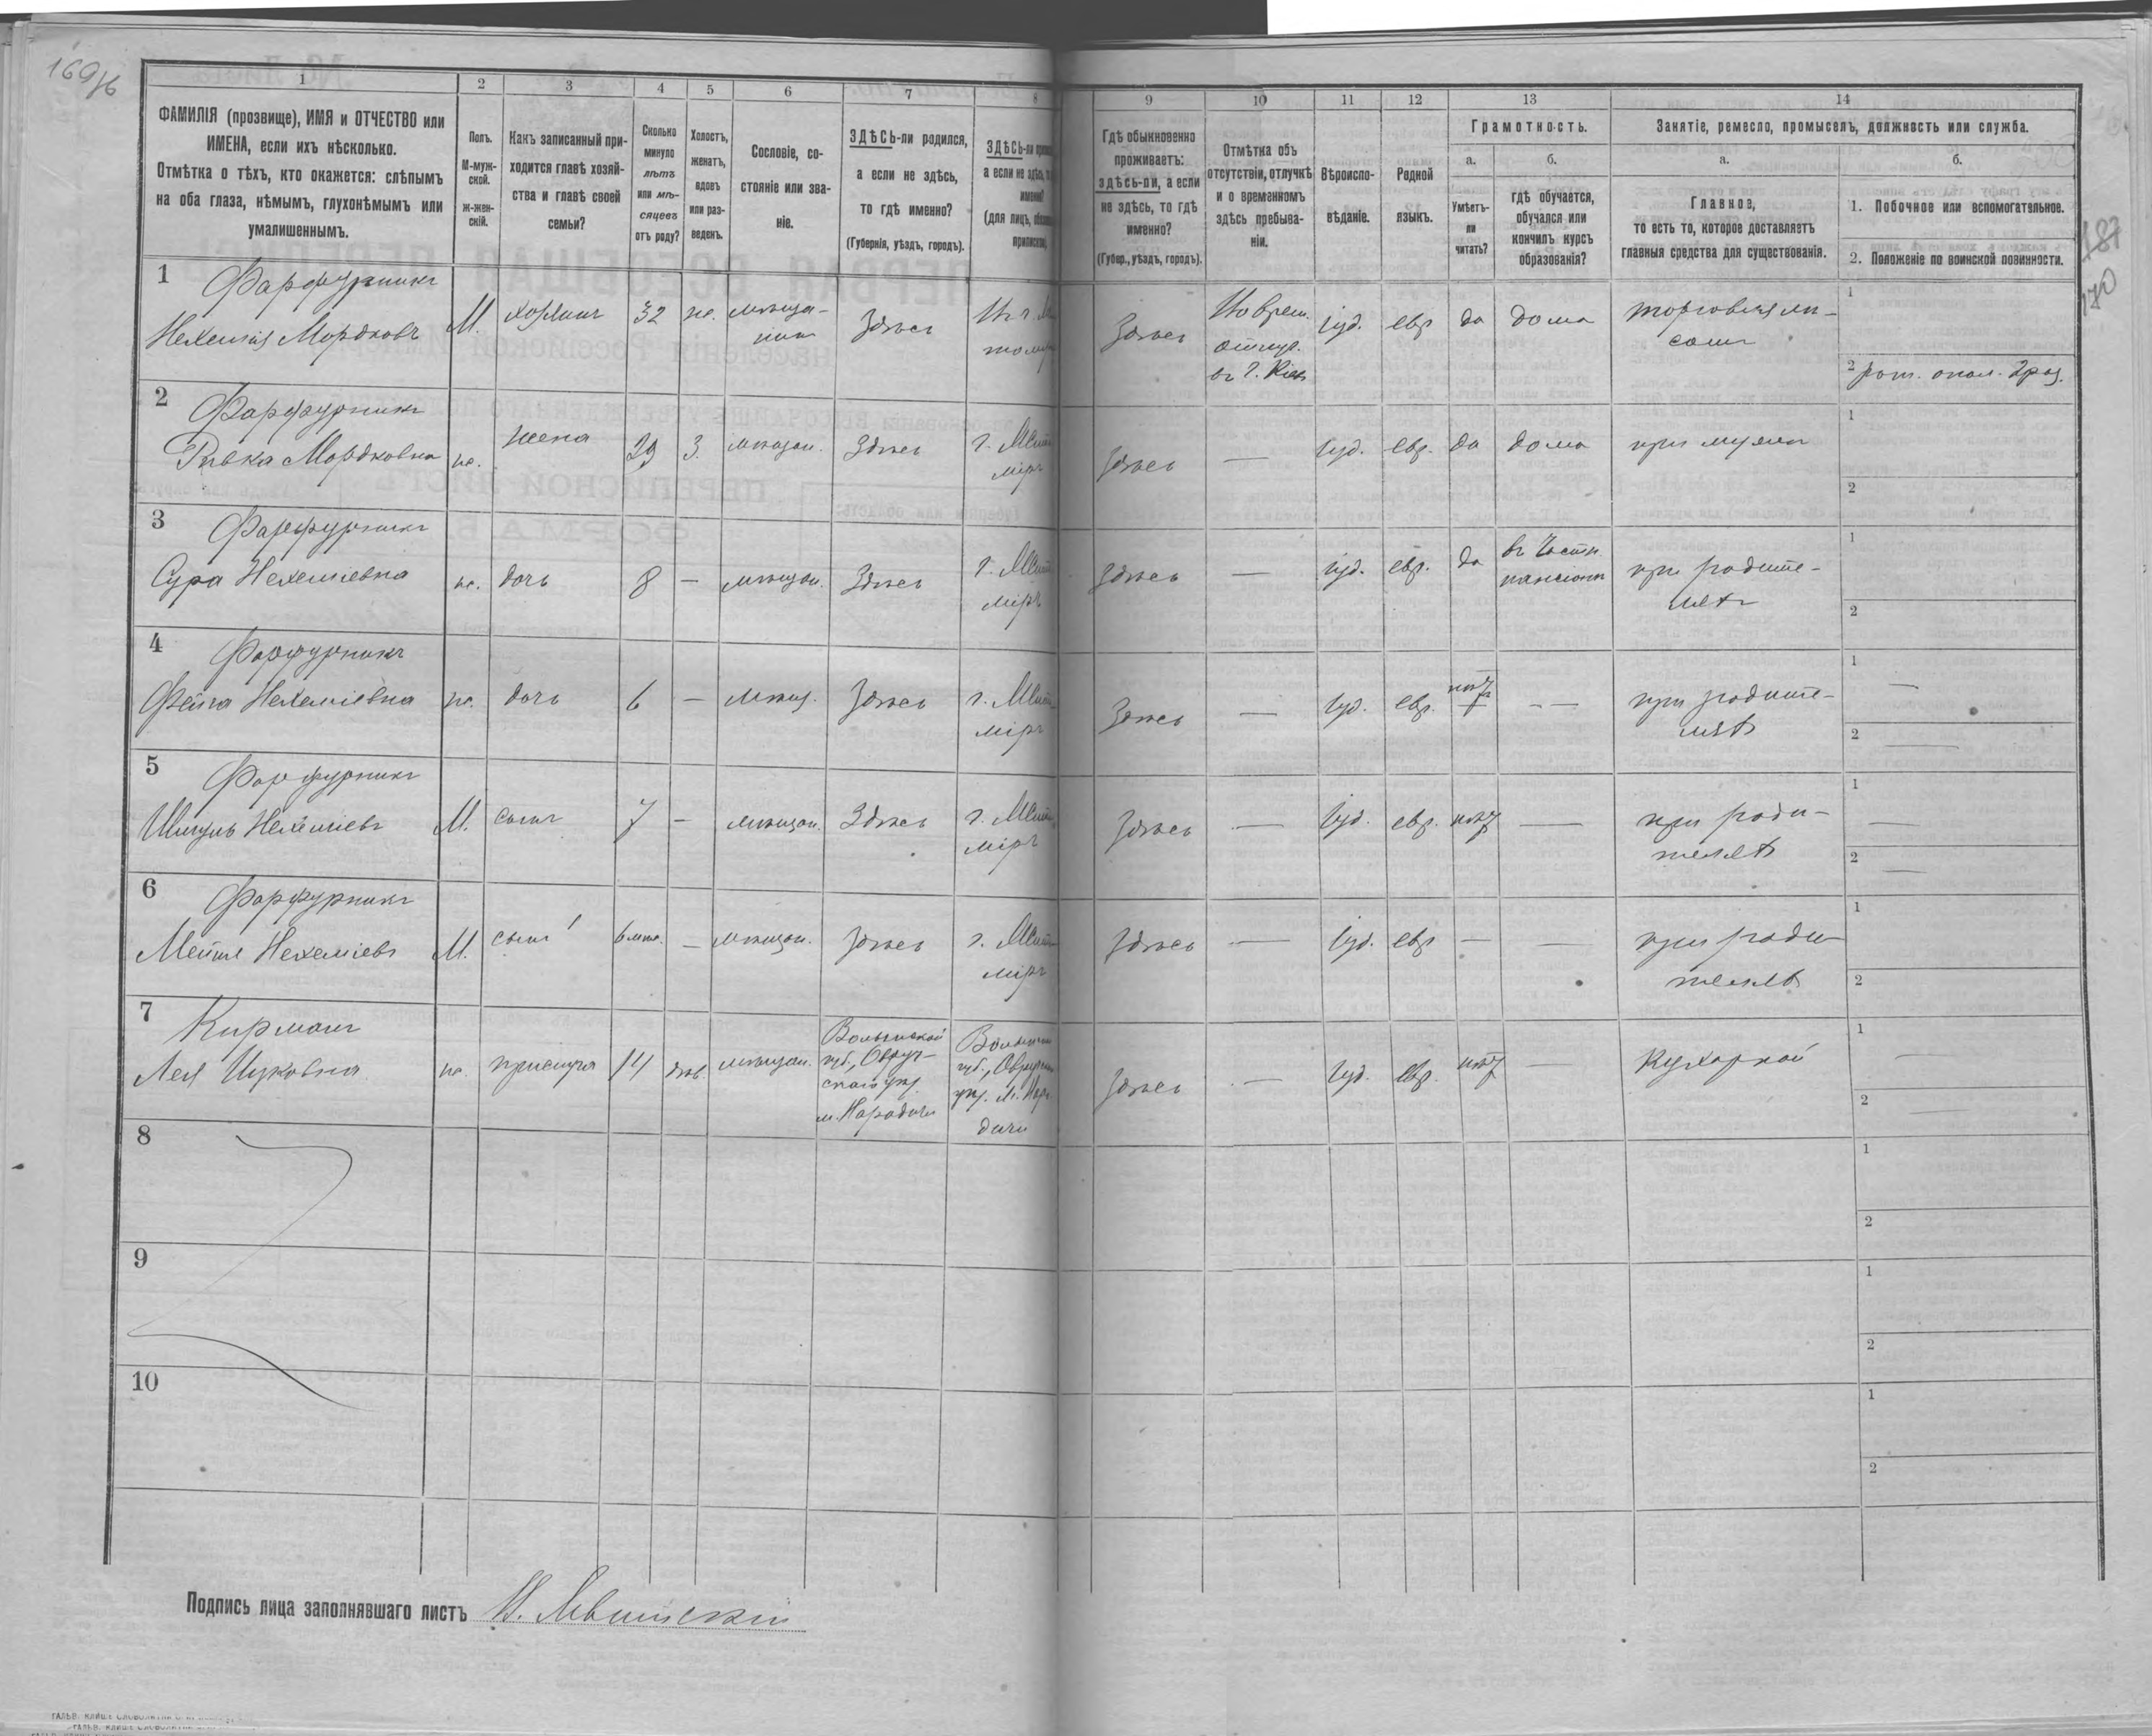 169/76
1
2
3
4
5
6
7
8
9
10
11
12
13
14
ФАМИЛІЯ (прозвище), ИМЯ и ОТЧЕСТВО или
ИМЕНА, если ихъ нѣсколько.
Отмѣтка о тѣхъ, кто окажется: слѣпымъ
на оба глаза, нѣмымъ, глухонѣмымъ или
умалишеннымъ.
Полъ.
М-муж-
ской.
Ж-жен-
скій.
Какъ записанный при-
ходится главѣ хозяй-
ства и главѣ своей
семьи?
Сколько
минуло
лѣтъ
или мѣ-
сяцевъ
отъ роду?
Холостъ,
женатъ,
вдовъ
или раз-
веденъ.
Сословіе, со-
стояніе или зва-
ніе.
ЗДѢСЬ-ли родился,
а если не здѣсь,
то гдѣ именно?
(Губернія, уѣздъ, городъ).
ЗДѢСЬ-ли
а если не здѣсь,
(для лицъ,
Гдѣ обыкновенно
проживаетъ:
здѣсь-ли, а если
не здѣсь, то гдѣ
именно?
(Губер., уѣздъ, городъ).
Отмѣтка объ
отсутствіи, отлучкѣ
и о временномъ
здѣсь пребыва-
ніи.
Вѣроиспо-
вѣданіе.
Родной
языкъ.
Грамотность.
а.
Умѣетъ-
ли
читать?
б.
гдѣ обучается,
обучался или
кончилъ курсъ
образованія?
Занятіе, ремесло, промыселъ, должность или служба.
а.
Главное,
то есть то, которое доставляетъ
главныя средства для существованія.
б.
1. Побочное или вспомогательное.
2. Положеніе по воинской повинности.
187
170
1 Фарфурникъ
Нехемія Мордковъ М. хозяинъ 32 ж. мѣща-
нинъ Здѣсь
Здѣсь По врем.
отлуч.
въ г. Кіевъ іуд. евр да дома торговля лѣ-
сомъ
1
2 рат. опол. 2 раз.
2 Фарфурникъ
Ривка Мордковна ж. жена 29 З. мѣщан. Здѣсь г. Жит
міръ
Здѣсь — іуд. евр. да дома при мужѣ
1
2
3 Фарфурникъ
Сура Нехеміевна ж. дочь 8 — мѣщан. Здѣсь г. Жит
міръ
Здѣсь — іуд. евр. да въ частн.
пансіонѣ при родите-
ляхъ
1
2
4 Фарфурникъ
Фейга Нехеміевна ж. дочь 6 — мѣщ. Здѣсь г. Жит
міръ
Здѣсь — іуд. евр. нѣтъ — — при родите-
ляхъ
1 —
2 —
5 Фарфурникъ
Шмуль Нехеміевъ М. сынъ 7 — мѣщан. Здѣсь г. Жит
міръ
Здѣсь — іуд. евр. нѣтъ — при роди-
теляхъ
1 —
2 —
6 Фарфурникъ
Нехеміевъ М. сынъ 6 мѣс. — мѣщан. Здѣсь г. Жит
міръ
Здѣсь — іуд. евр — — при роди-
теляхъ
1
2
7 Кирманъ
Лея Ицковна ж. прислуга 14 дѣв. мѣщан. Волынской
губ., Овруч-
скаго уѣз.
м. Народичи
губ., Овруч
уѣз. м. Наро-
дичи
Здѣсь — іуд. евр. нѣтъ — кухаркой
1 —
2 —
8
1
2
9
1
2
10
1
2
Подпись лица заполнявшаго листъ